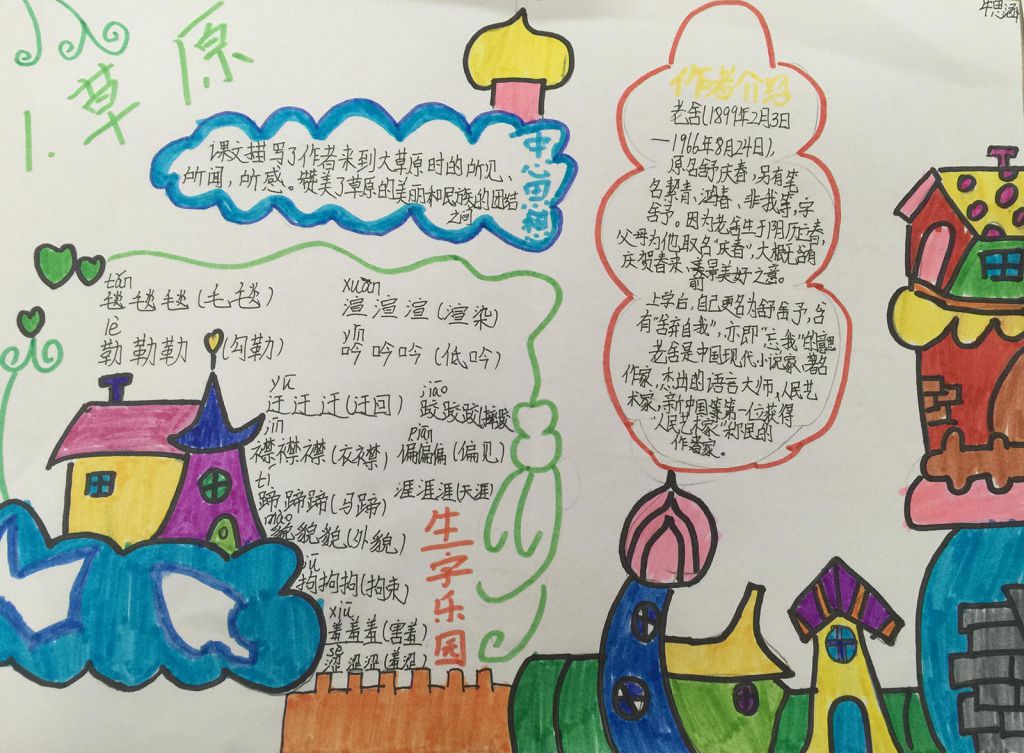 1.草原
牛思涵
中心思想
课文描写了作者来到大草原时的所见、
所闻，所感。赞美了草原的美丽和民族的团结
之间
作者介绍
老舍(1899年2月3日
—1966年8月24日)，
原名舒庆春，另有笔
名絜青、鸿春、非我等，字
舍予。因为老舍生于阴历立春，
父母为他取名“庆春”，大概含有
庆贺春来、景美好之意。
前
上学后，自己更名为舒舍予，含
有“舍弃自我”，亦即“忘我”的意思
老舍是中国现代小说家、著名
作家，杰出的语言大师、人民艺
术家，新中国第一位获得
“人民艺术家”称号的
作者家。
tǎn
毯毯毯(毛毯)
xuàn
渲渲渲(渲染)
lè
勒勒勒(勾勒)
yín
吟吟吟(低吟)
yū
迂迂迂(迂回)
jiāo
跤跤跤(摔跤)
jīn
襟襟襟(衣襟)
piān
偏偏偏(偏见)
tí
蹄蹄蹄(马蹄)
涯涯涯(天涯)
mào
貌貌貌(外貌)
拘拘拘(拘束)
xiū
羞羞羞(害羞)
sè
涩涩涩(羞涩)
生字乐园